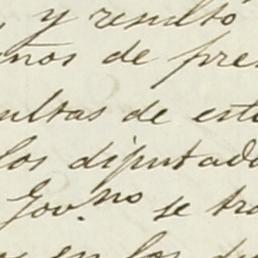 y resultó
ños de pres
ultas de esta
los diputado
Gov.no se tra
en los